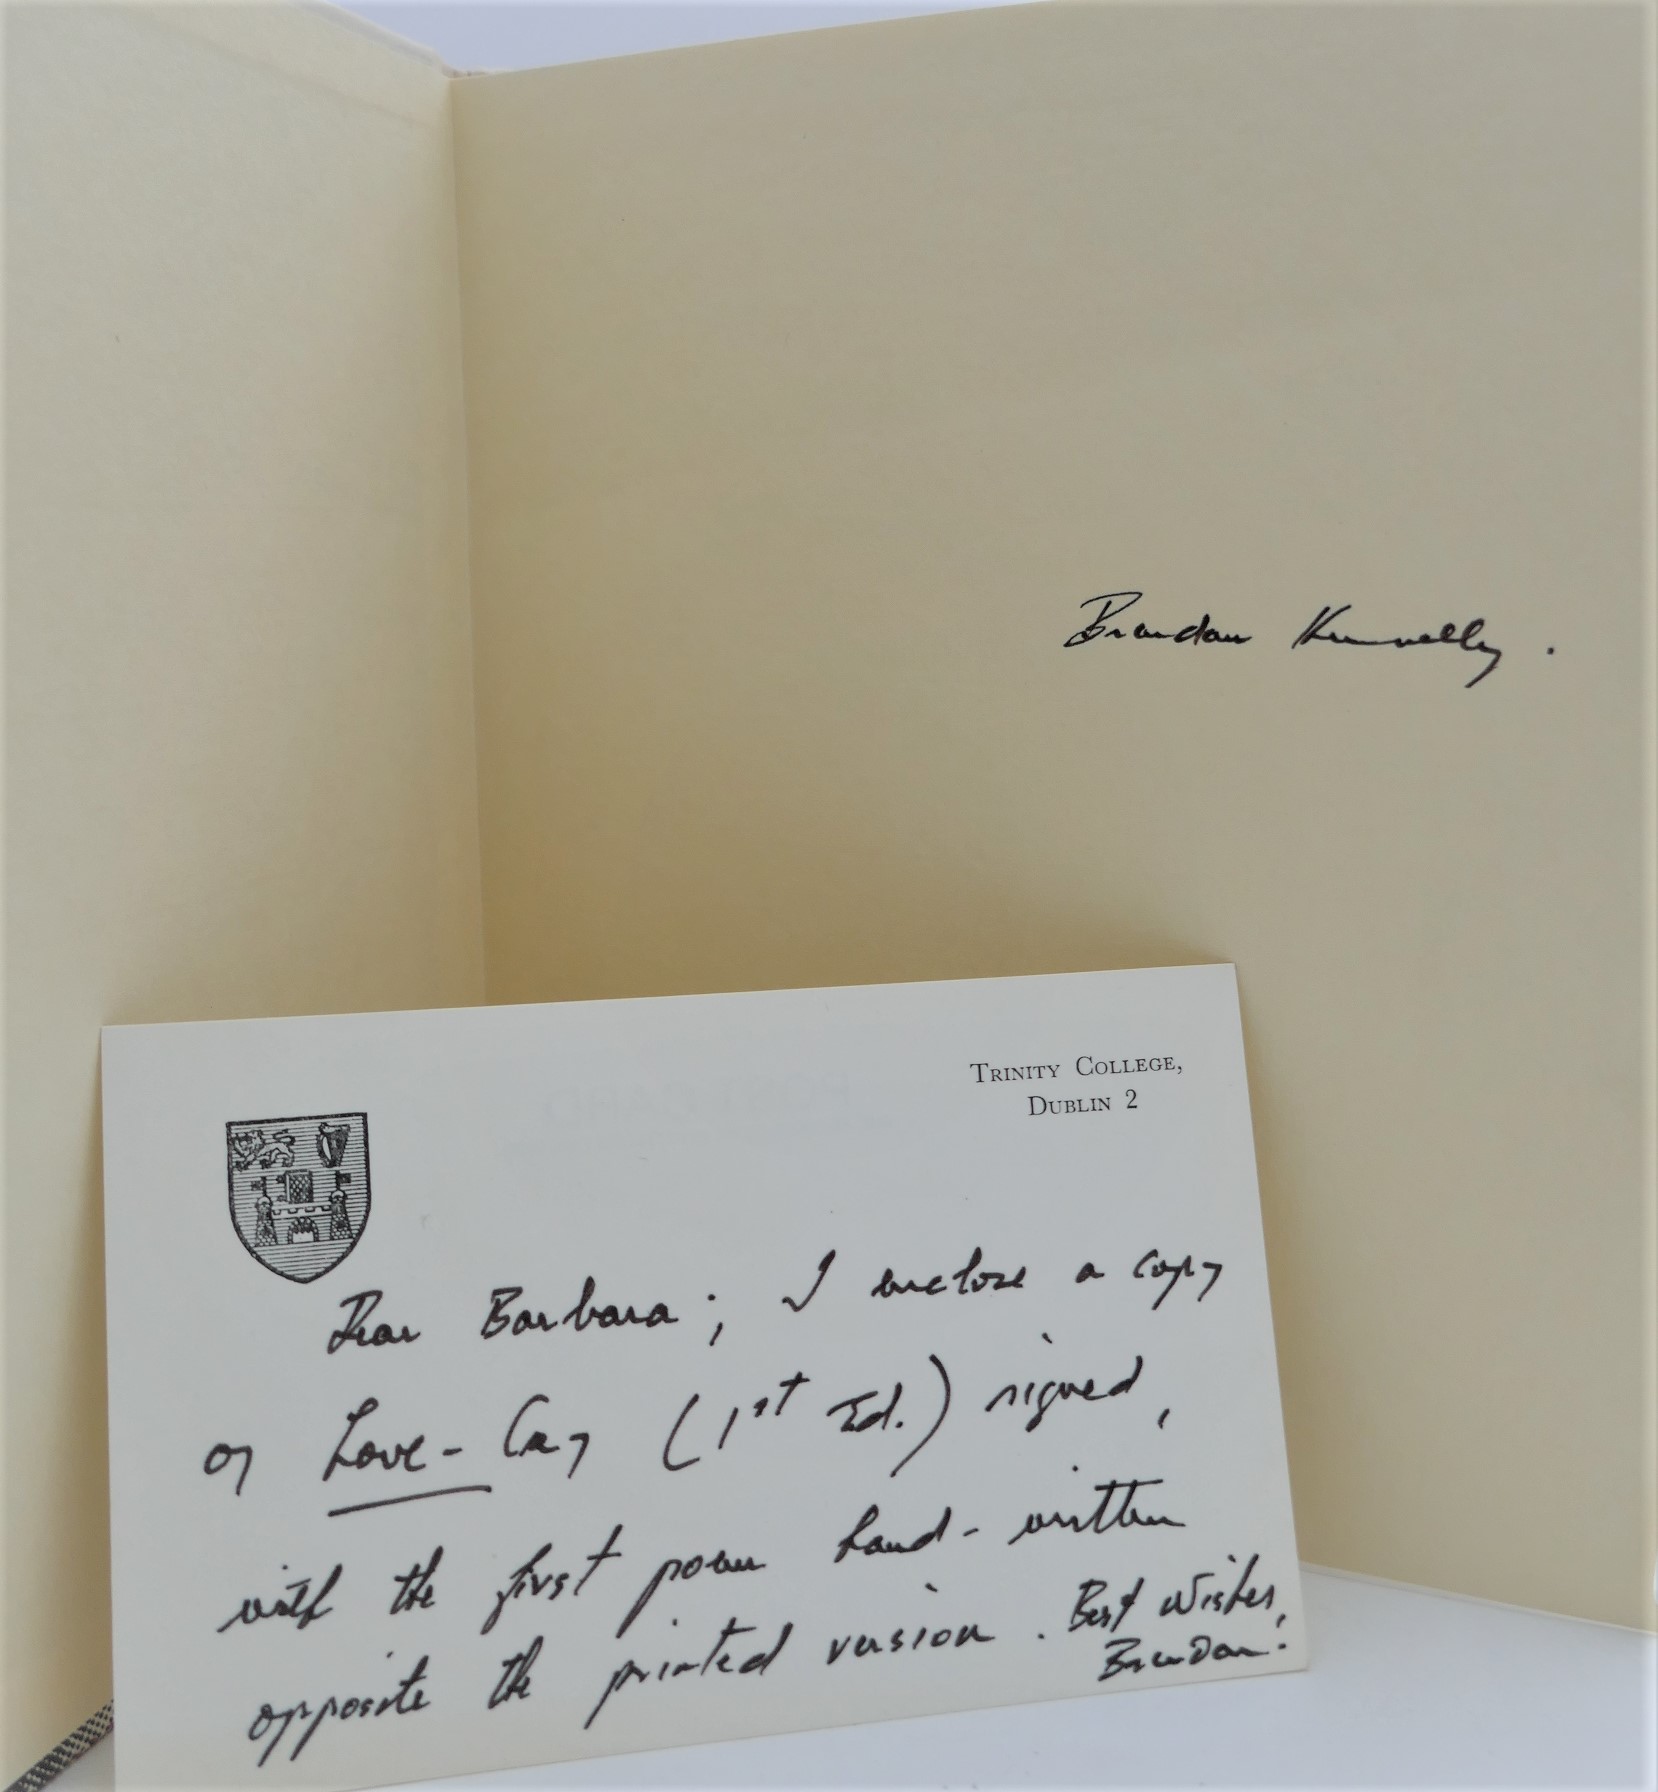 Brendan Kennelly.
TRINITY COLLEGE,
DUBLIN 2
Dear Barbara; I enclose a copy
of Love-Cry (1st Ed.) signed,
with the first poem hand-written
opposite the printed version. Best wishes,
Brendan.